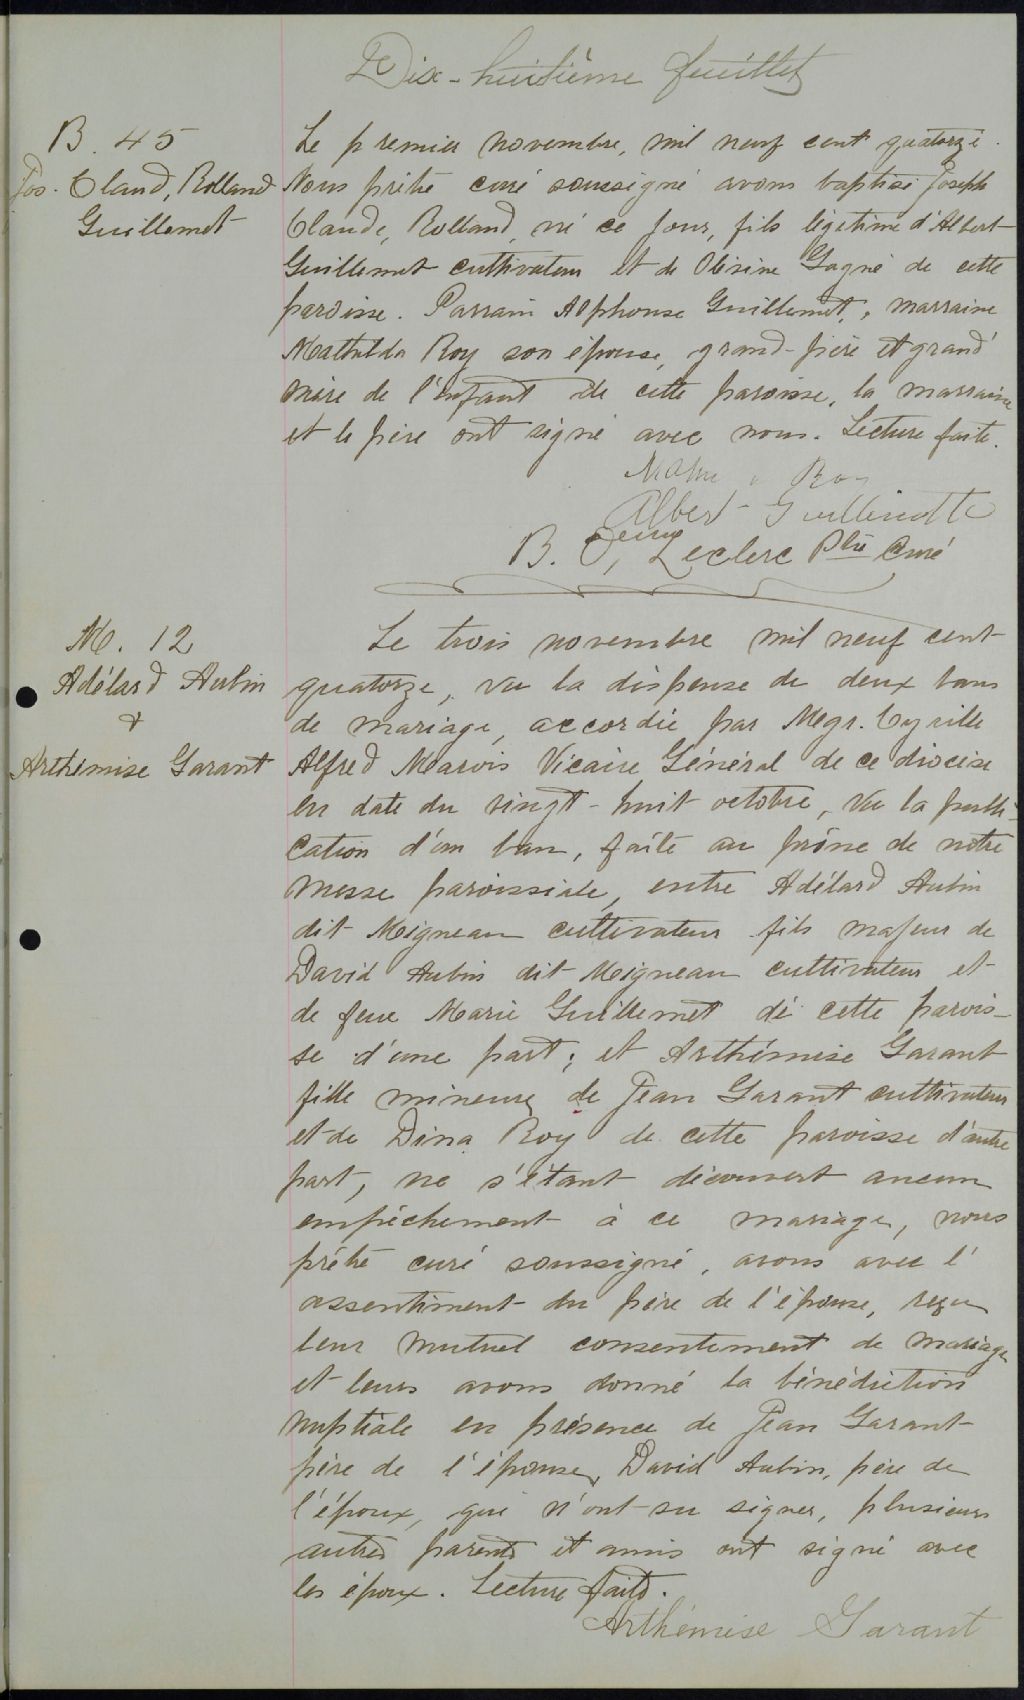 Dix-huitième feuillet
B. 45
Jos. Claud, Rolland
Guillemet
Le premier novembre, mil neuf cent quatorze.
Nous prêtre curé soussigné avons baptisé Joseph
Claude, Rolland, né ce jour, fils légitime d'Albert
Guillemet cultivateur et de Gagné de cette
paroisse. Parrain Alphonse Guillemet, marraine
Mathilda Roy son épouse, grand-père et grand'
mère de l'enfant de cette paroisse, la marraine
et le père ont signé avec nous. Lecture faite.
Roy
Albert Guillemette
B. Leclerc Ptre Curé
M. 12
Adélard Aubin
&
Arthémise Garant
Le trois novembre mil neuf cent
quatorze, vu la dispense de deux bans
de mariage, accordée par Mgr. Cyrille
Alfred Marois Vicaire Général de ce diocèse
en date du vingt-huit octobre, vu la publi-
cation d'un ban, faite au prône de notre
messe paroissiale, entre Adélard Aubin
dit Migneau cultivateur fils majeur de
David Aubin dit Migneau cultivateur et
de feue Marie Guillemet de cette parois-
se d'une part; et Arthémise Garant
fille mineure de Jean Garant cultivateur
et de Dina Roy de cette paroisse d'autre
part, ne s'étant découvert aucun
empêchement à ce mariage, nous
prêtre curé soussigné, avons avec l'
assentiment du père de l'épouse, reçu
leur mutuel consentement de mariage
et leurs avons donné la bénédiction
nuptiale en présence de Jean Garant
père de l'épouse, David Aubin, père de
l'époux, qui n'ont su signer, plusieurs
autres parents et amis ont signé avec
les époux. Lecture faite.
Arthémise Garant